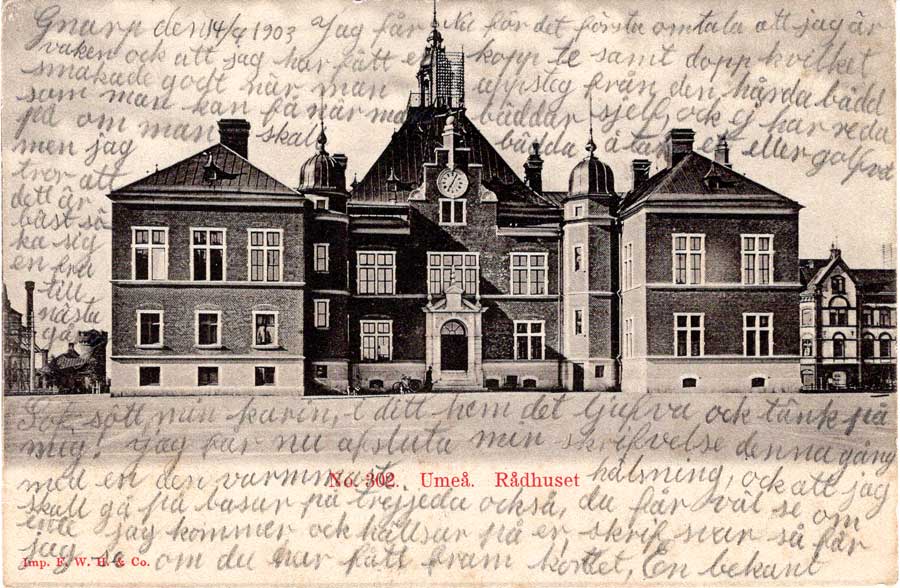 Gnarp den 14/4 1903 Jag får Nu för det första omtala att jag är
vaken och att jag har fått en kopp te samt dopp hvilket
smakade godt när man uppsteg från den hårda bädd
som man kan få när man bäddar sjelf, och ej har reda
på om man skall bädda å tak eller golfva
men jag
tror att
dett är
bäst så
ka sig
en fru
till
nästa
gå
Sof sött min karin, i ditt hem det ljufva och tänk på
mig! jag får nu afsluta min skrifvelse denna gång
med en den varmnast hälsning, och att jag
No. 302. Umeå. Rådhuset
skall gå på basar på trejjeda också, du får väl se om
inte jag kommer och hällsar på er, skrif svar så får
jag se om du har fått fram kortet, En bekant
Imp. F. W. H. & Co.